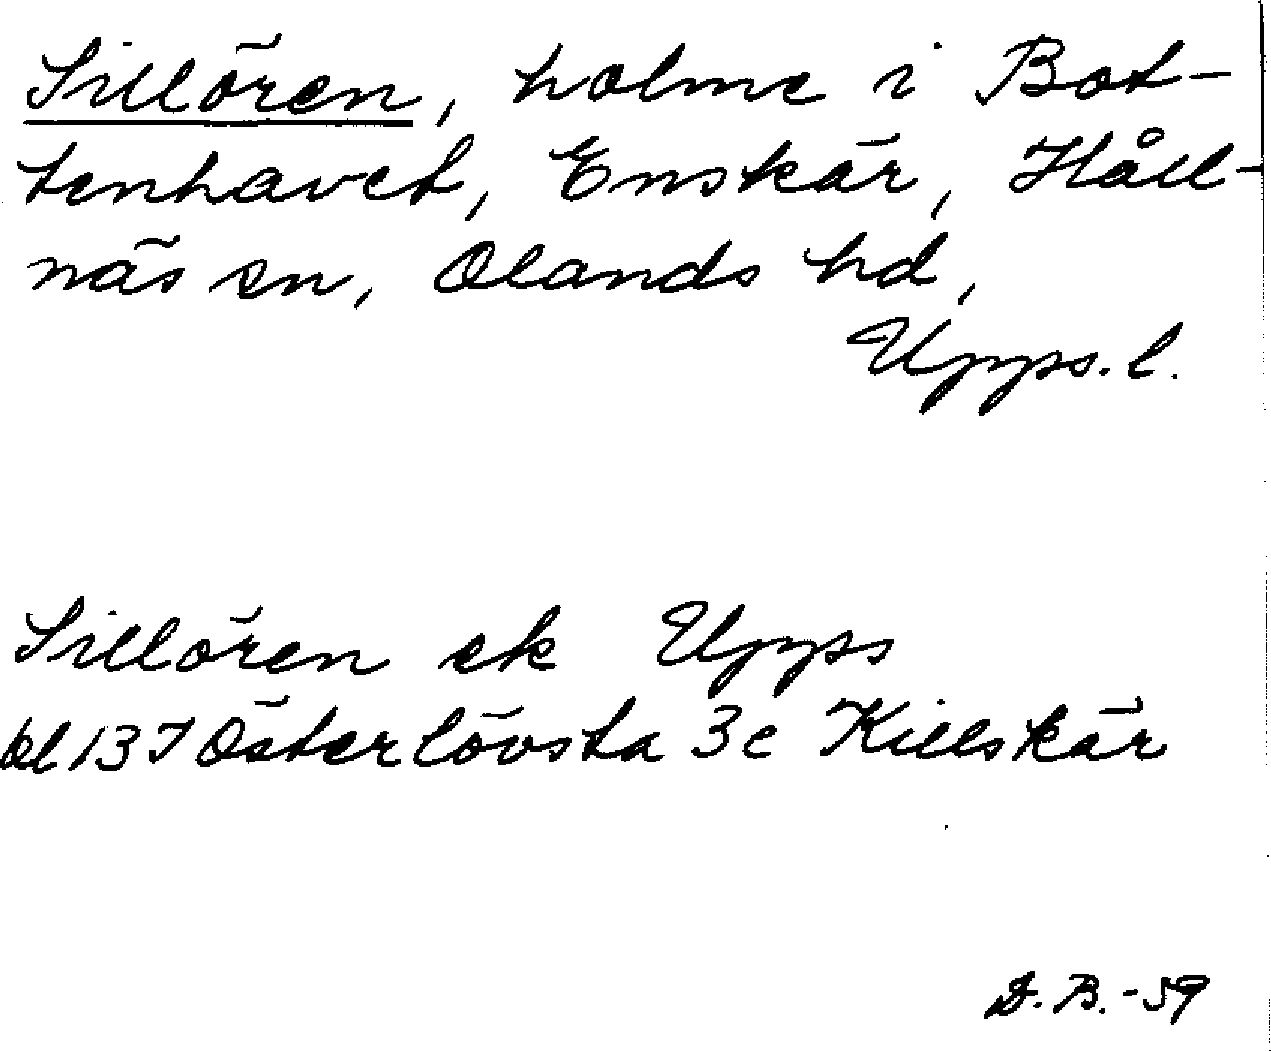 Sillören, holme i Bot-
tenhavet, Enskär, Håll-
näs sn, Olands hd,
Upps. l.
Sillören ek Upps
bl 13 I Österlövsta 3c Killskär
D. B. -59